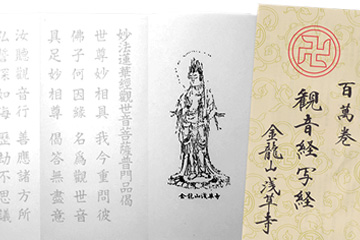 卍
百萬巻
観音経写経
金龍山浅草寺
金龍山浅草寺
妙法蓮華經觀世音菩薩普門品偈
世尊妙相具 我今重問彼
佛子何因縁 名爲觀世音
具足妙相尊 偈答無盡意
汝聽觀音行 善應諸方所
弘誓深如海 歴劫不思議